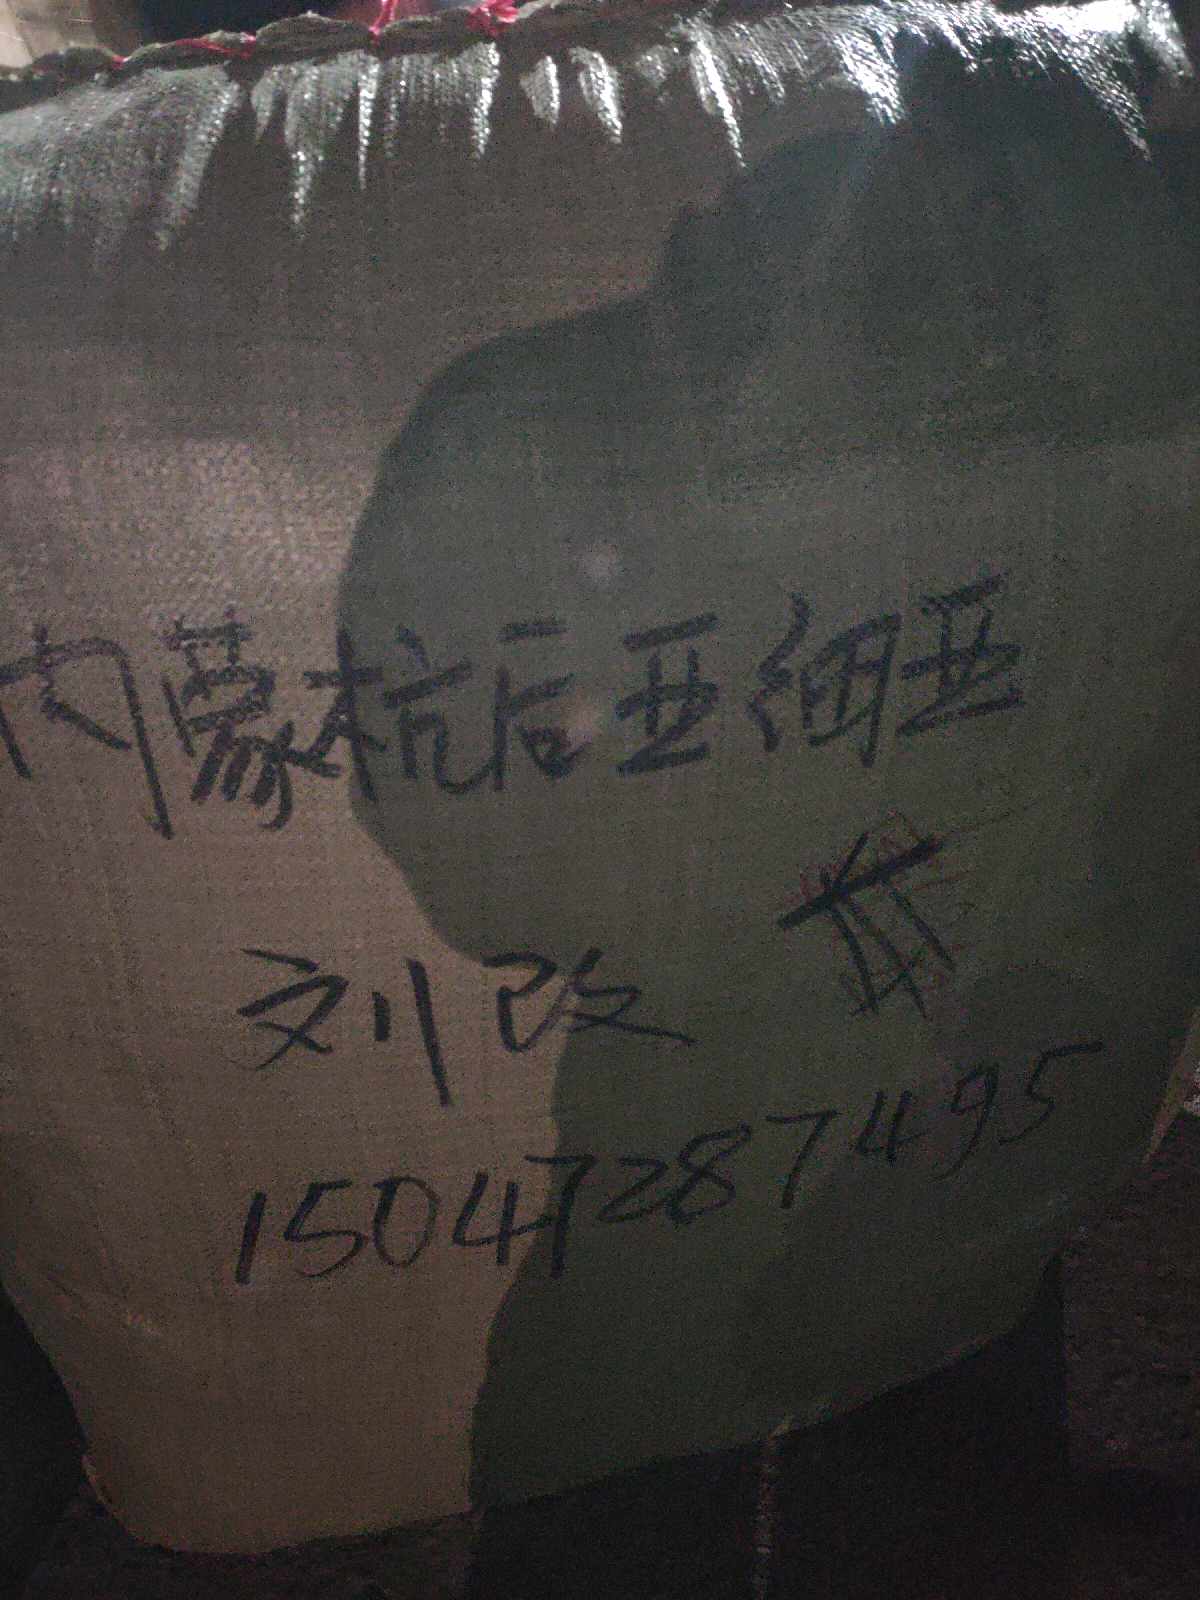 内蒙杭后亚细亚
刘改
15047287495